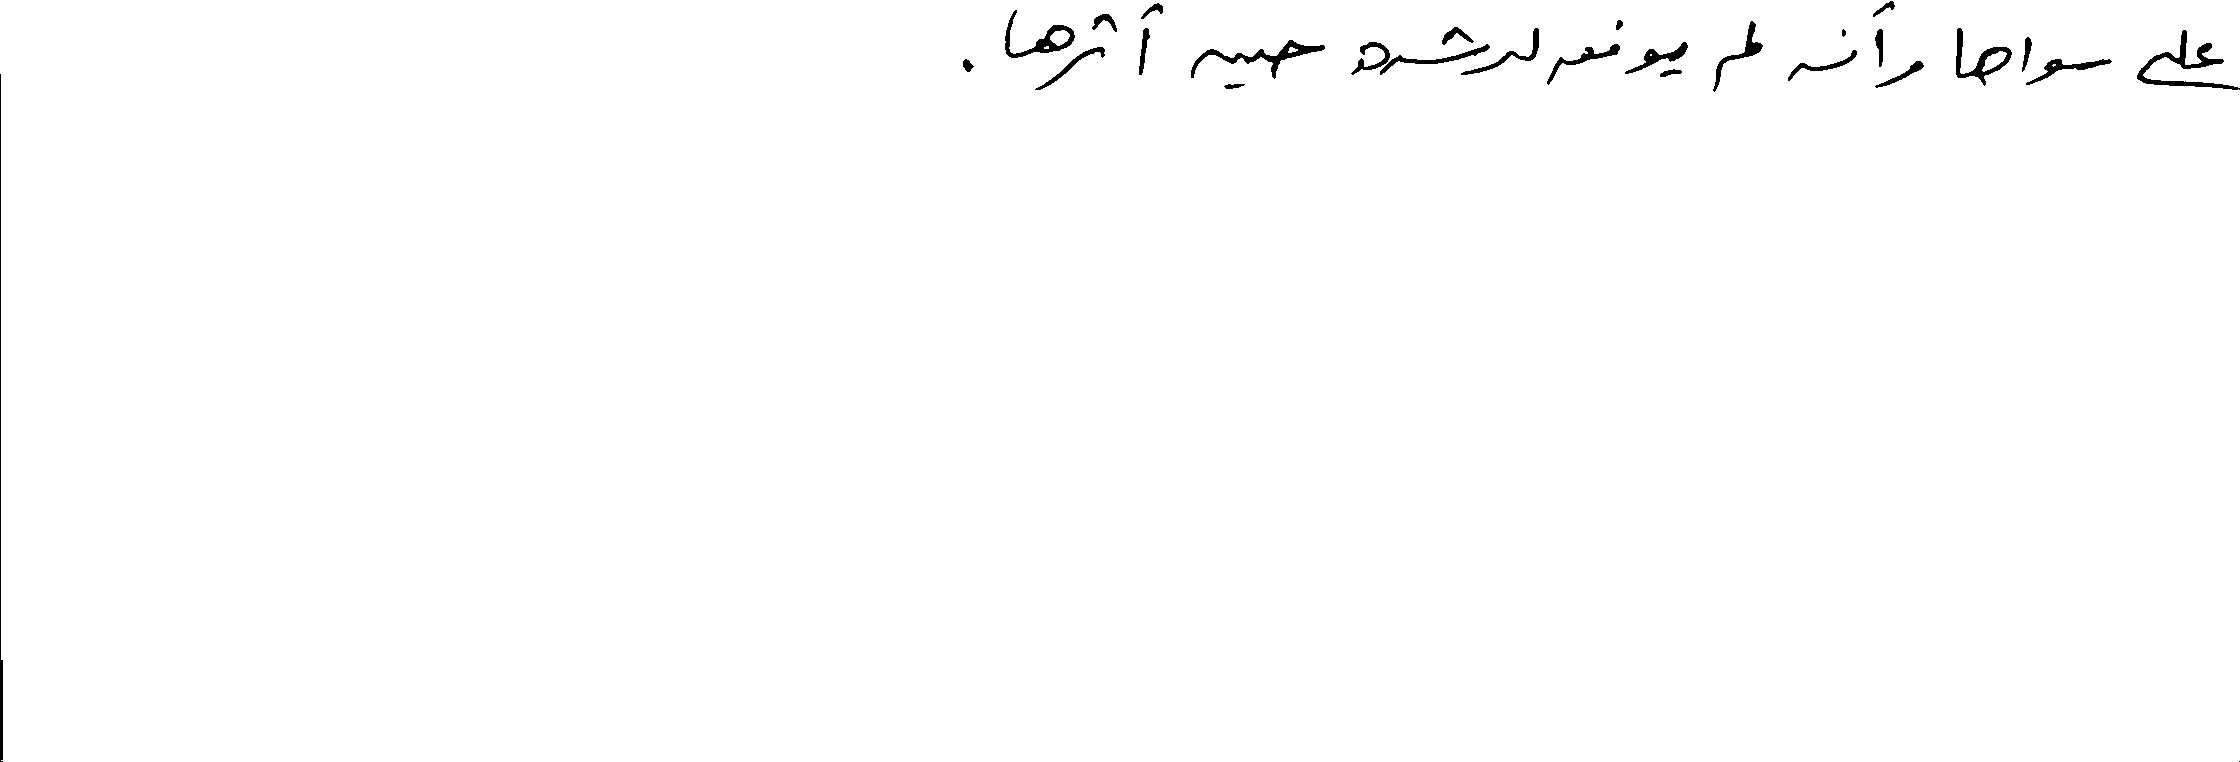 على سواها وأنه لم يوفق لرشده حين آثرها .